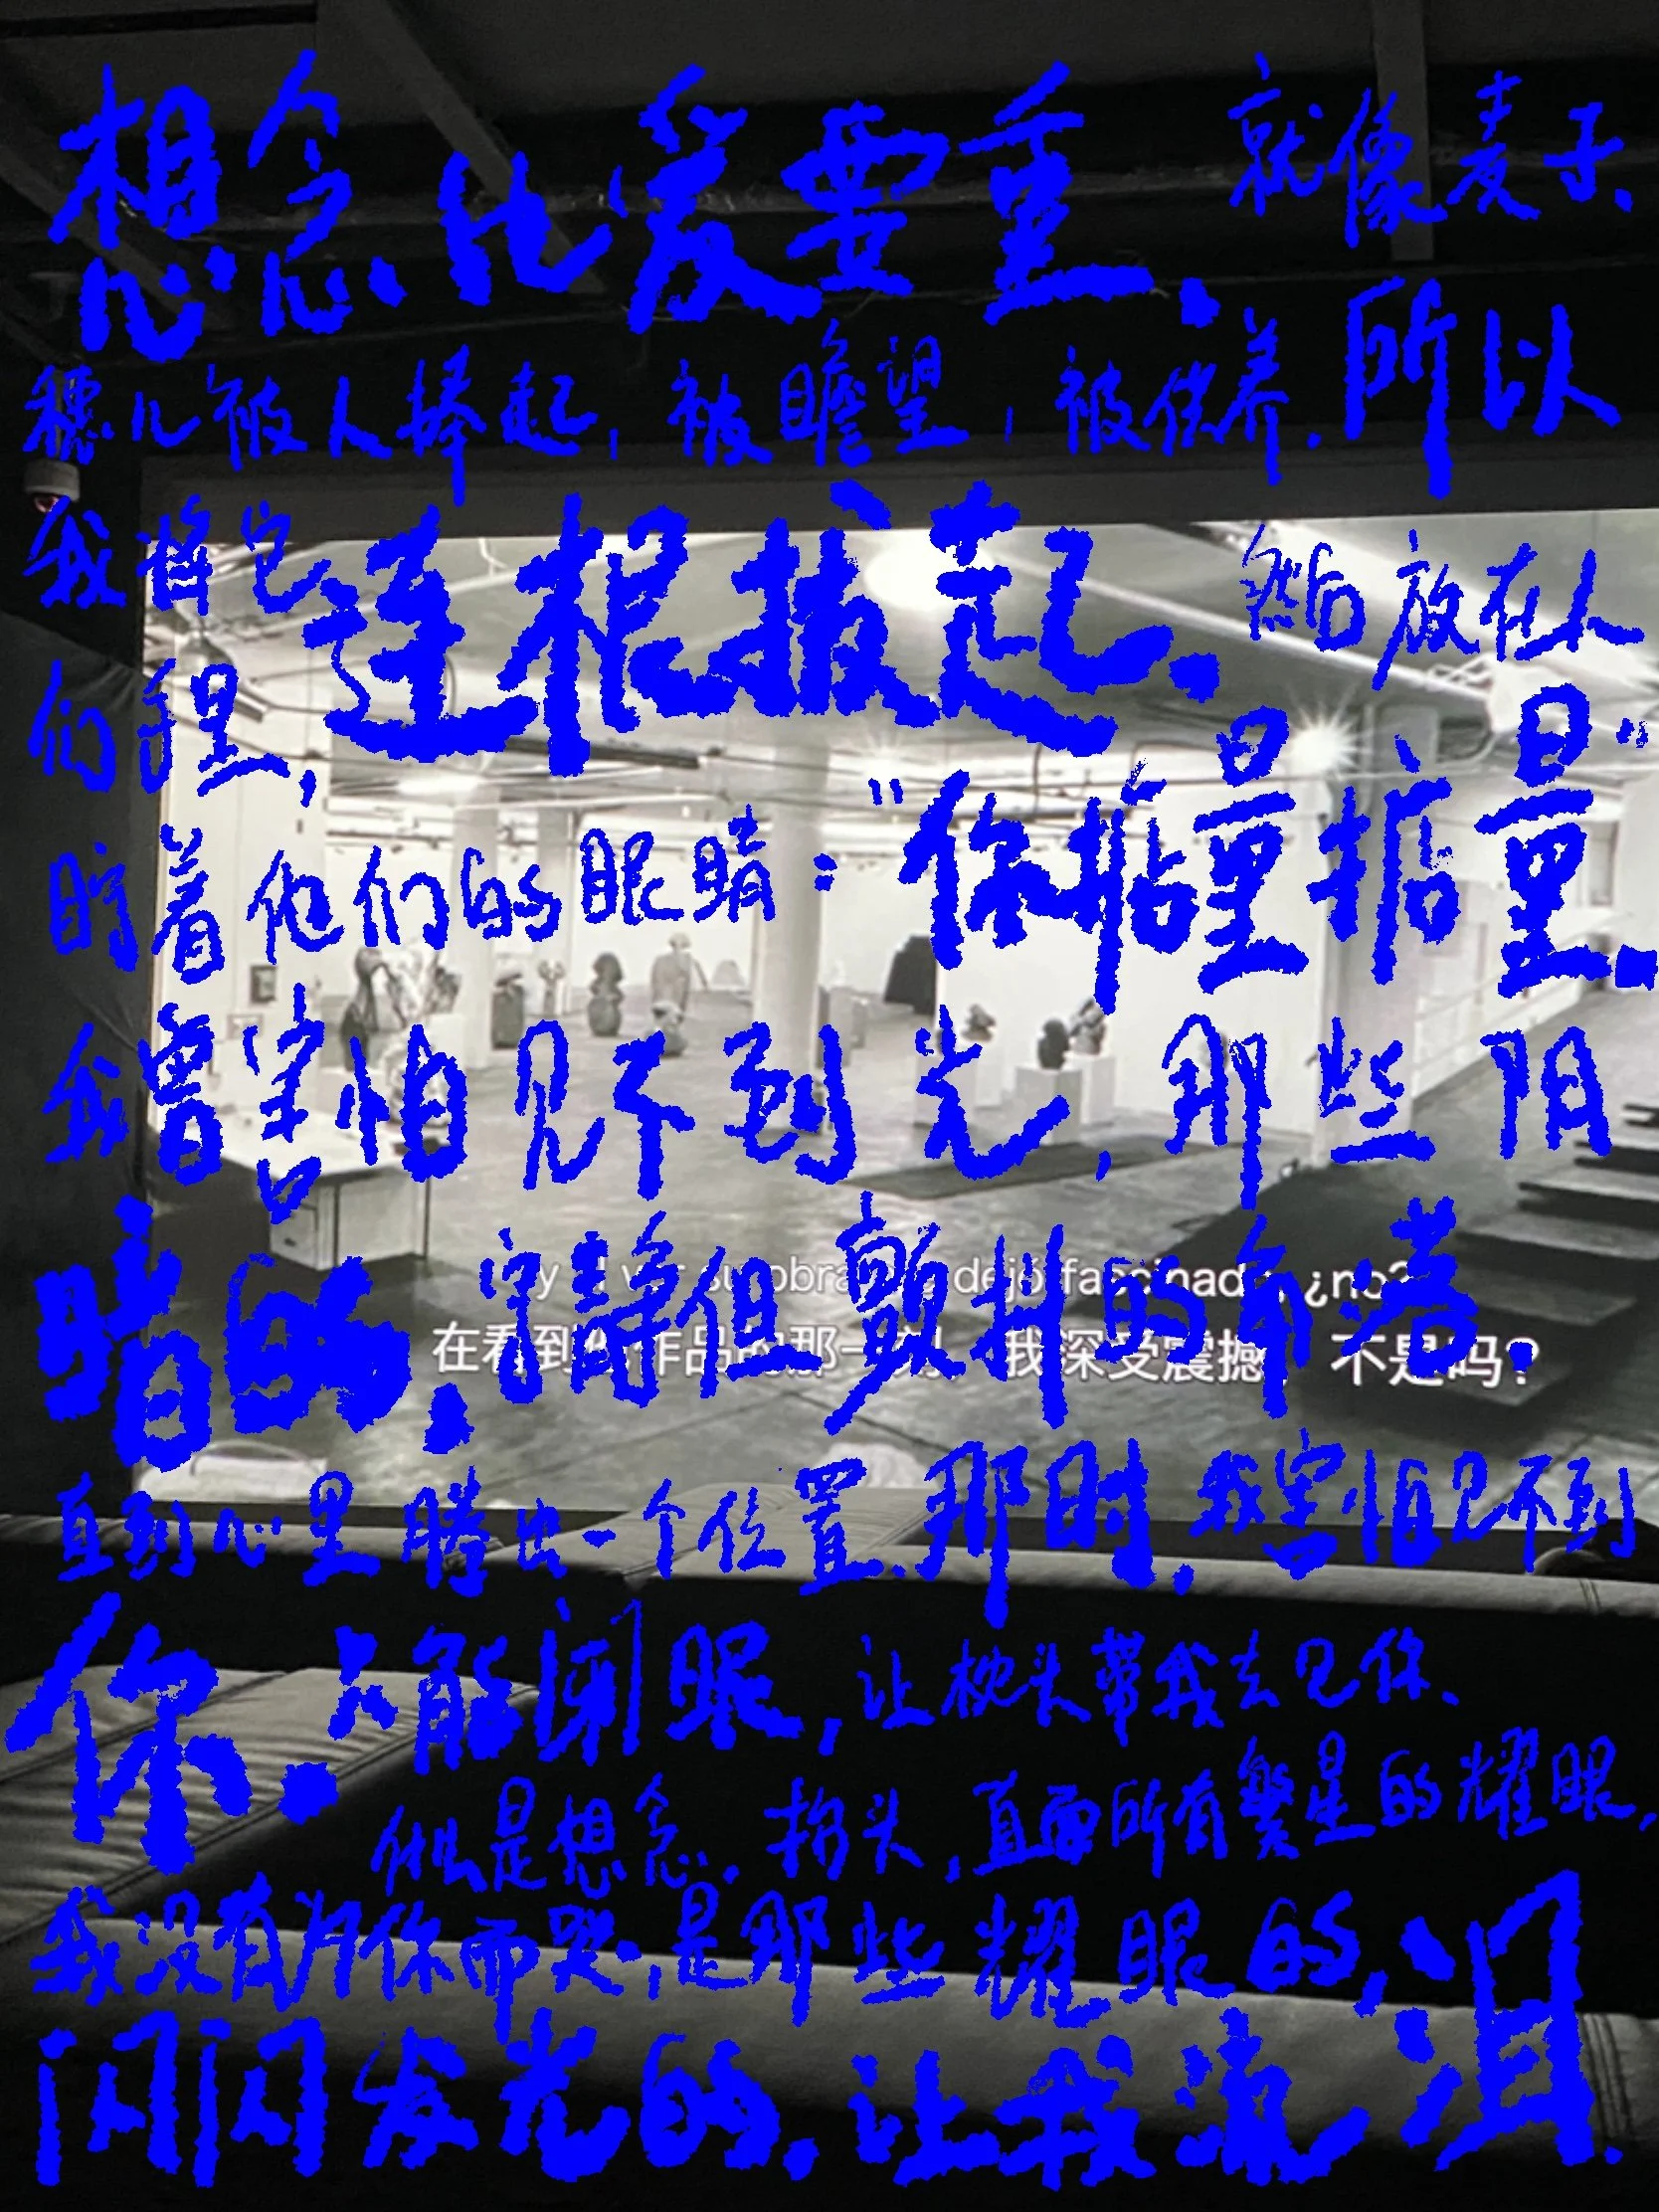 想念比爱要重.就像麦子、
穗儿被人捧起，被瞻望，被供养.所以
我将它连根拔起.然后放在人
们手里，
盯着他们的眼睛："你掂量掂量".
我曾害怕见不到光，那些阴
暗的，宁静但颤抖的角落.
y al ver su obra dejó fascinad ¿no?
在看到 作品的那一刻，我深受震撼，不是吗？
直到心里腾出一个位置.那时，我害怕见不到
你.只能闭眼，让枕头带我去见你、
似是想念.抬头，直面所有繁星的耀眼，
我没有为你而哭，是那些耀眼的，
闪闪发光的，让我流泪.